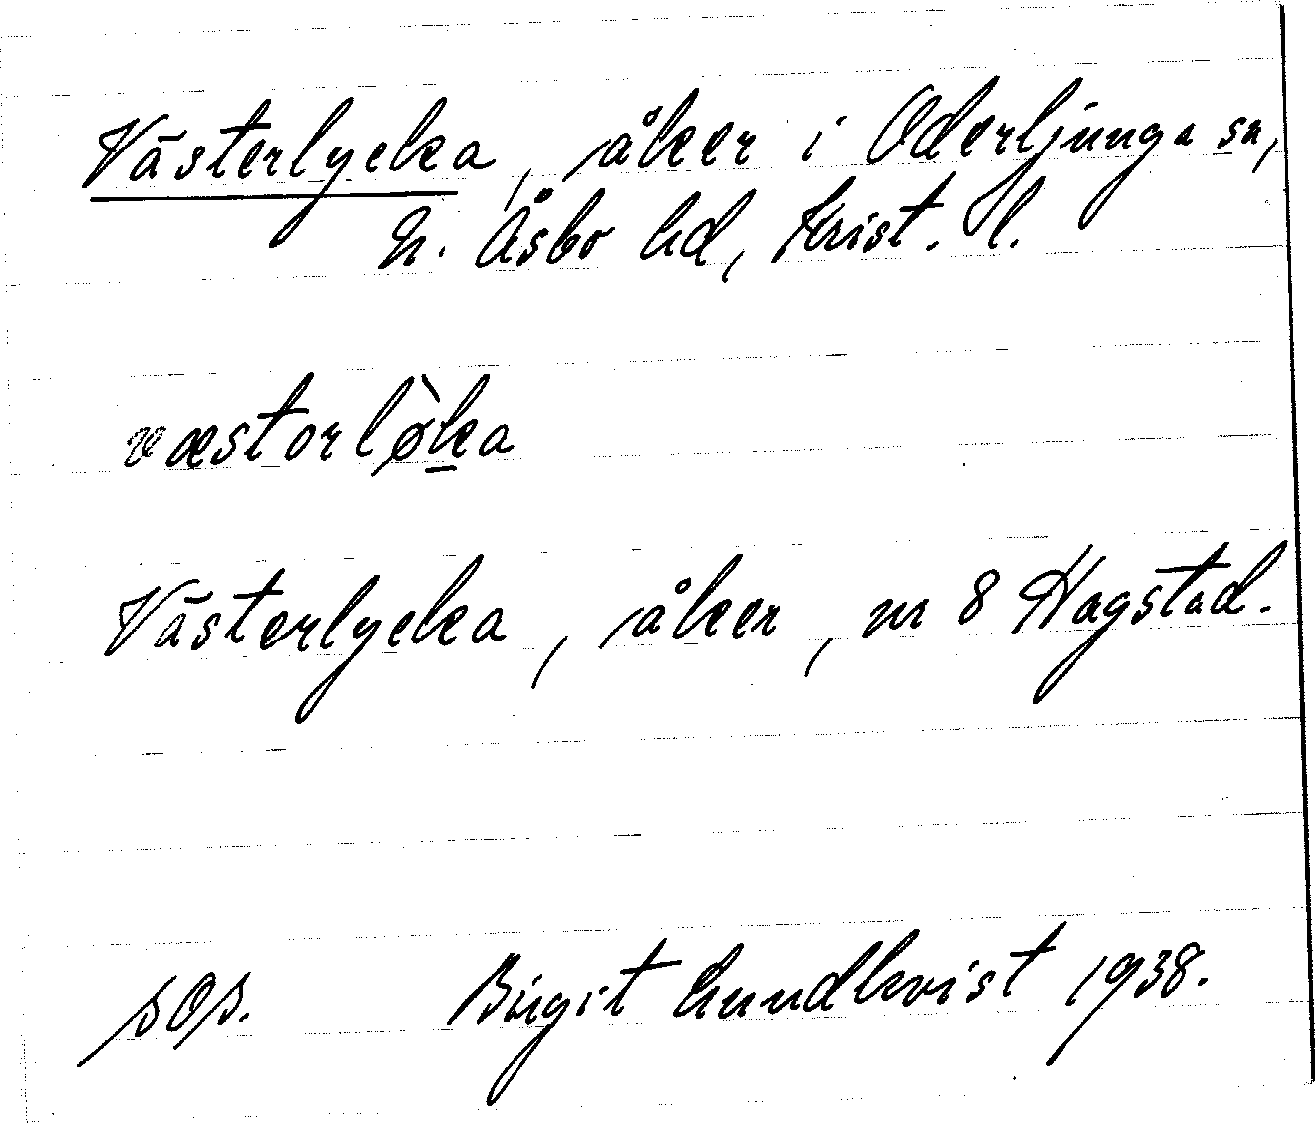 Västerlycka, åker i Oderljunga sn,
N. Åsbo hd, Krist. l.
væstorlø̀ka
Västerlycka, åker, nr 8 Hagstad.
sos. Birgit Lundkvist 1938.